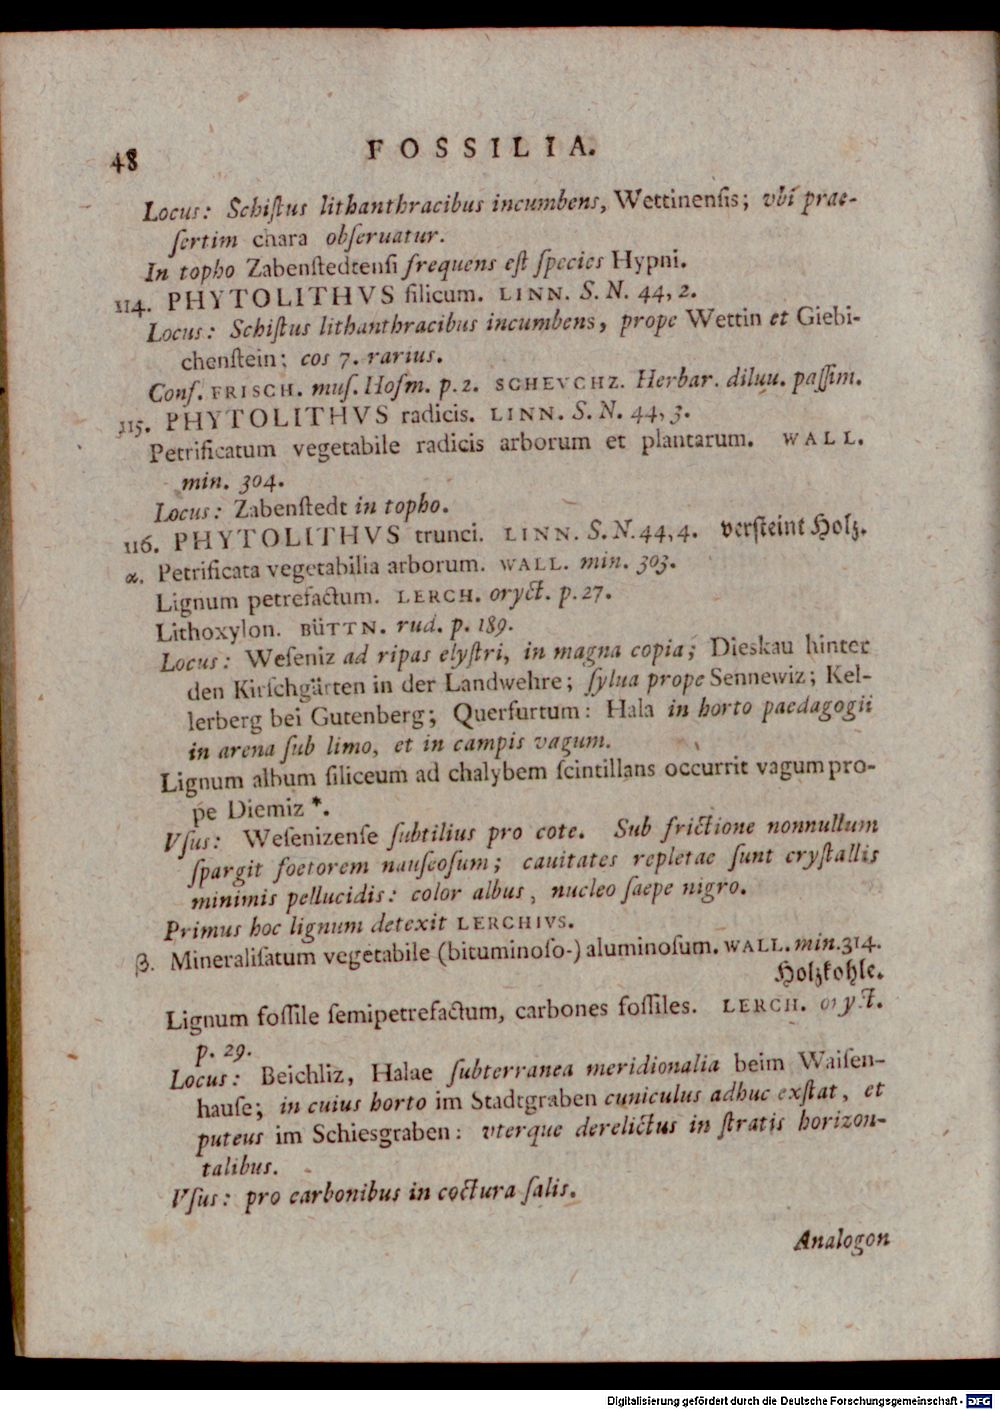 48 FOSSILIA.
Locus: Schiſtus lithanthracibus incumbens, Wettinenſis; vbi prae-
ſertim chara obſeruatur.
In topho Zabenſtedtenſi frequens eſt ſpecies Hypni.
114. PHYTOLITHVS filicum. LINN. S. N. 44, 2.
Locus: Schiſtus lithanthracibus incumbens, prope Wettin et Giebi-
chenſtein; cos 7. rarius.
Conf. FRISCH. muſ. Hofm. p. 2. SCHEVCHZ. Herbar. diluu. paſſim.
115. PHYTOLITHVS radicis. LINN. S. N. 44, 3.
Petrificatum vegetabile radicis arborum et plantarum. WALL.
min. 304.
Locus: Zabenſtedt in topho.
116. PHYTOLITHVS trunci. LINN. S. N. 44, 4. verſteint Holz.
α. Petrificata vegetabilia arborum. WALL. min. 303.
Lignum petrefactum. LERCH. oryct. p. 27.
Lithoxylon. BÜTTN. rud. p. 189.
Locus: Weſeniz ad ripas elyſtri, in magna copia; Dieskau hinter
den Kirſchgärten in der Landwehre; ſylua prope Sennewiz; Kel-
lerberg bei Gutenberg; Querfurtum: Hala in horto paedagogii
in arena ſub limo, et in campis vagum.
Lignum album ſiliceum ad chalybem ſcintillans occurrit vagum pro-
pe Diemiz *.
Vſus: Weſenizenſe ſubtilius pro cote. Sub frictione nonnullum
ſpargit foetorem nauſeoſum; cauitates repletae ſunt cryſtallis
minimis pellucidis: color albus, nucleo ſaepe nigro.
Primus hoc lignum detexit LERCHIVS.
β. Mineraliſatum vegetabile (bituminoſo-) aluminoſum. WALL. min. 314.
Holzkohle.
Lignum foſſile ſemipetrefactum, carbones foſſiles. LERCH. oryct.
p. 29.
Locus: Beichliz, Halae ſubterranea meridionalia beim Waiſen-
hauſe; in cuius horto im Stadtgraben cuniculus adhuc exſtat, et
puteus im Schiesgraben: vterque derelictus in ſtratis horizon-
talibus.
Vſus: pro carbonibus in coctura ſalis.
Analogon
Digitalisierung gefördert durch die Deutsche Forschungsgemeinschaft - DFG